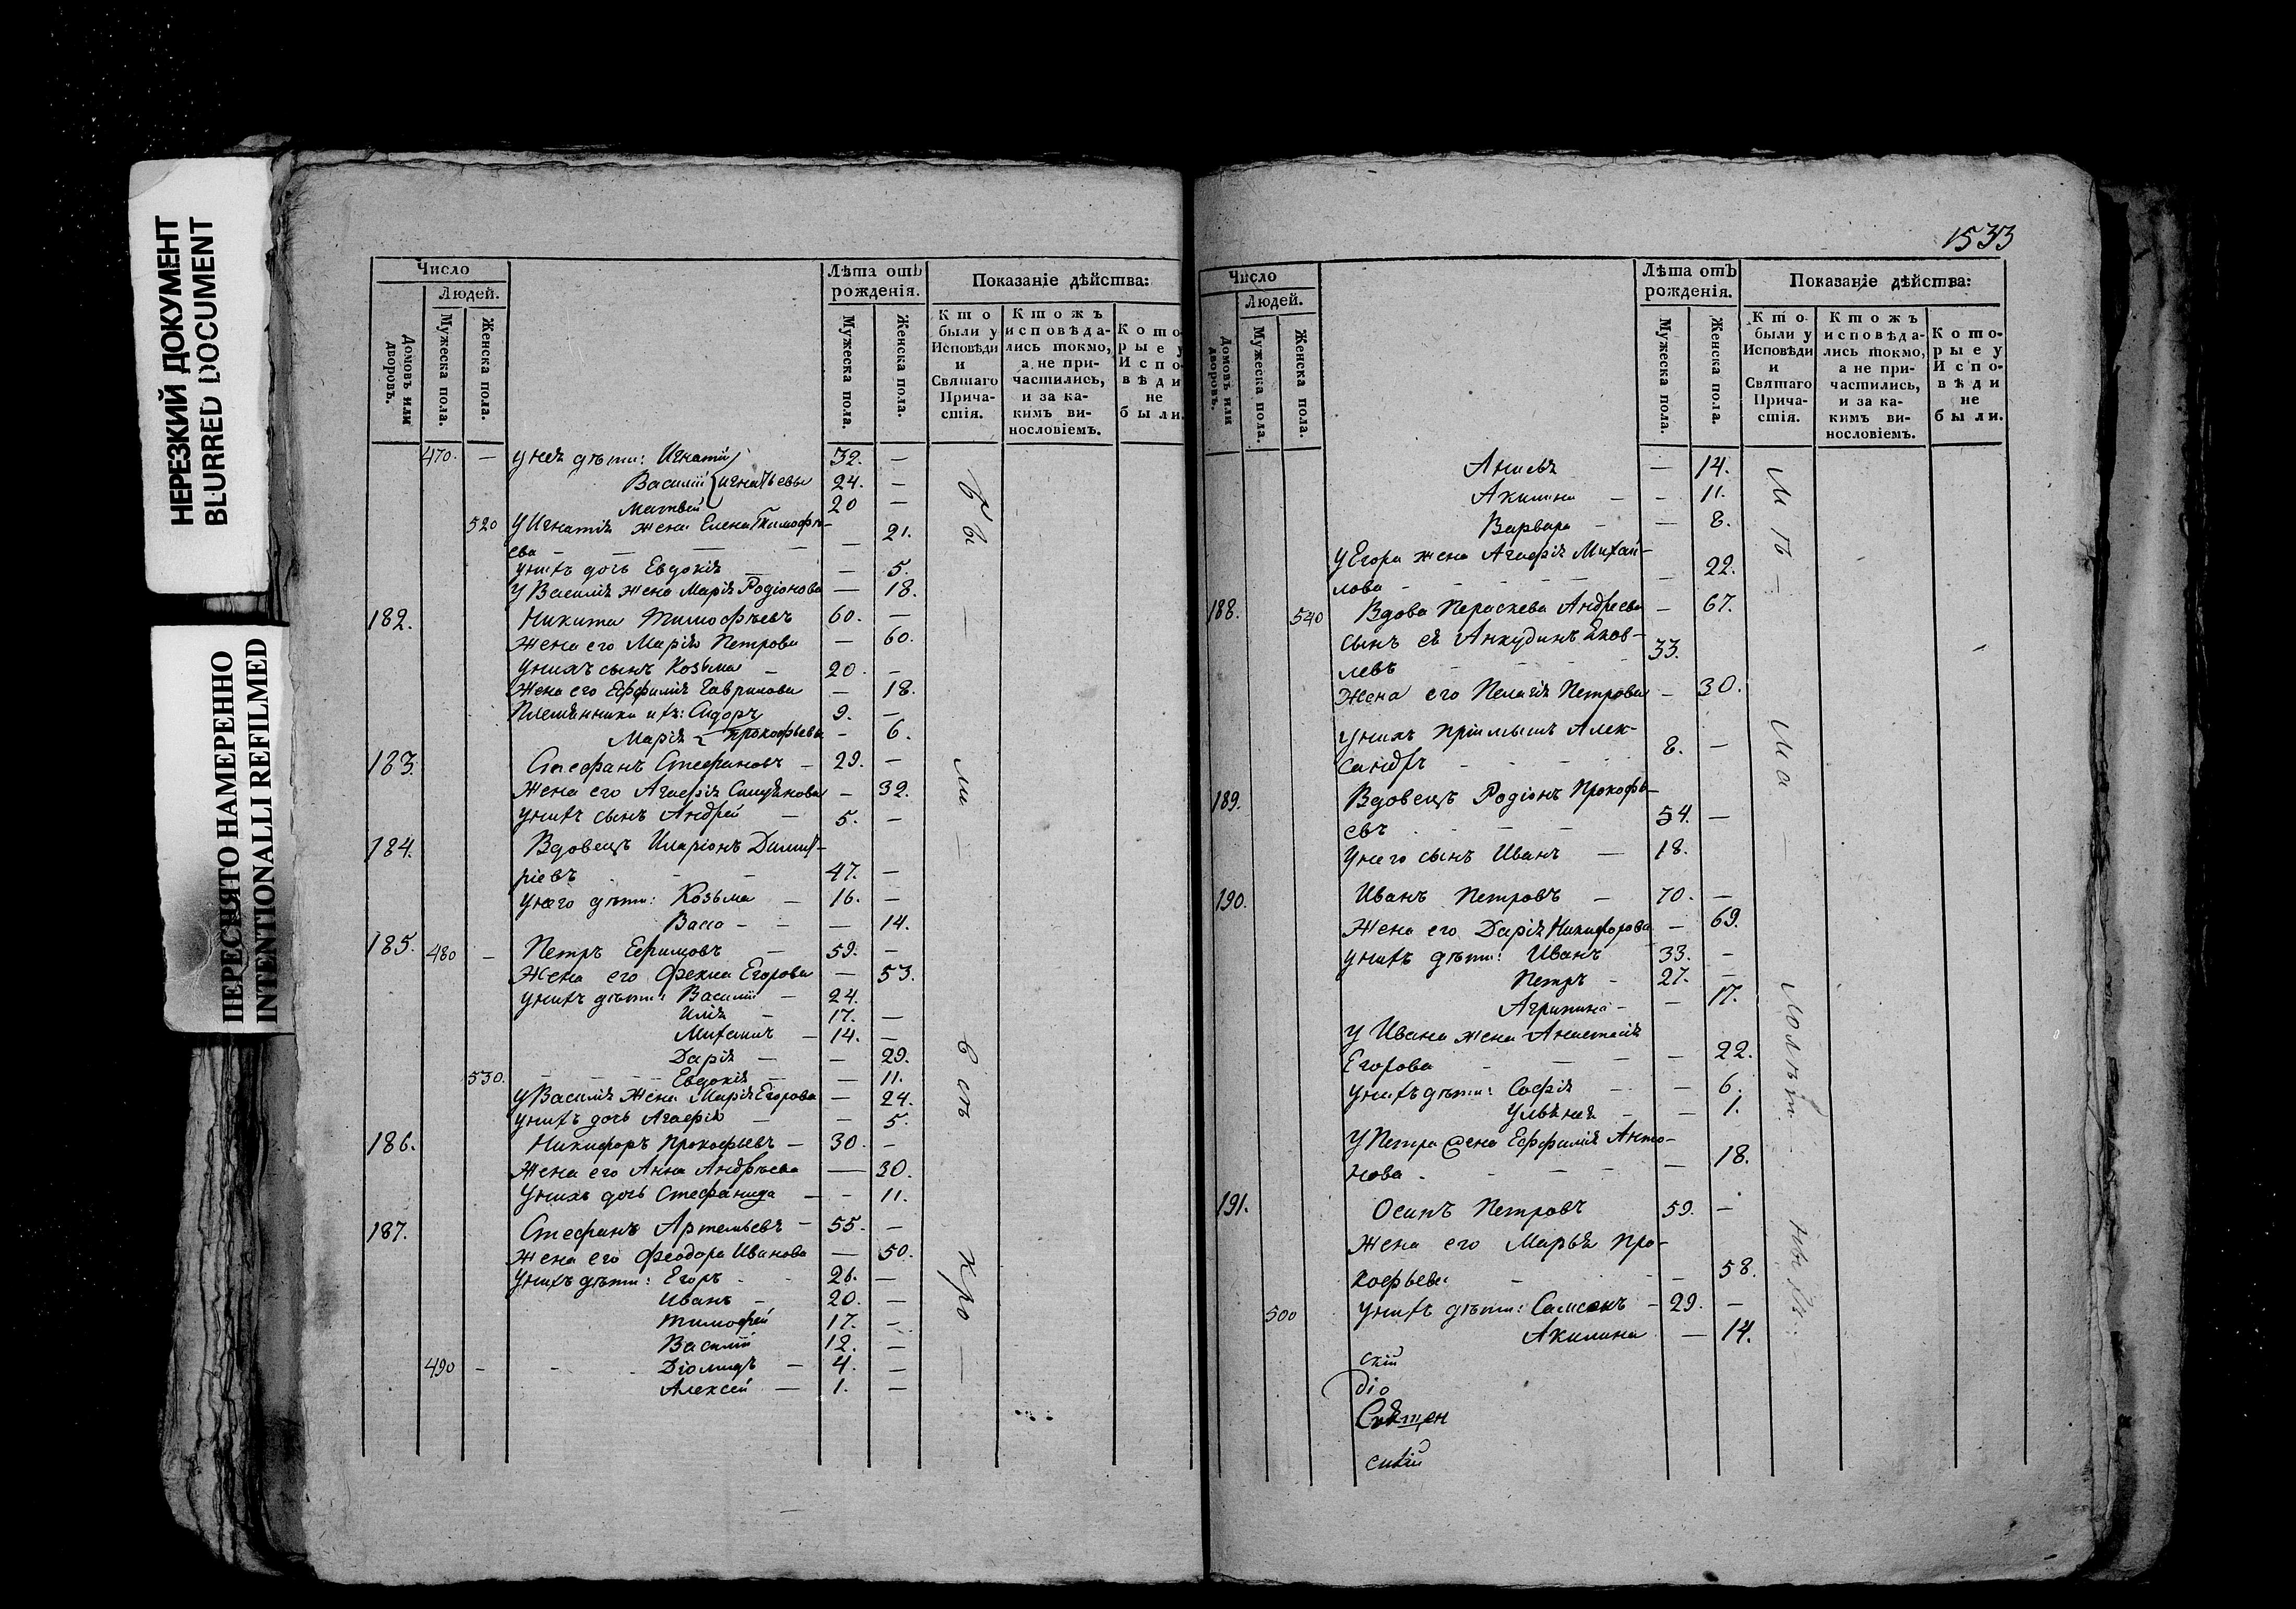 НЕРЕЗКИЙ ДОКУМЕНТ
BLURRED DOCUMENT
ПЕРЕСНЯТО НАМЕРЕННО
INTENTIONALLI REFILMED
Число
Людей.
Домовъ или дворовъ.
Мужеска пола.
Женска пола.
Лѣта отъ рожденія.
Мужеска пола.
Женска пола.
Показаніе дѣйства:
Кто были у Исповѣди и Святаго Причастія.
Ктожъ исповѣдались токмо, а не причастились, и за какимъ винословіемъ.
Которые у Исповѣди не были.
470. — у нея дѣти: Игнатій 32. —
Василій Игнатьевы 24. —
Матвей 20 —
520 У Игнатія жена Елена Тимофѣ-
ева — — — — — 21.
у нихъ дочь Евдокія — — 5.
У Василія жена Марія Родіонова — 18.
182. Никита Тимофѣевъ 60. —
Жена его Марія Петрова — 60.
у нихъ сынъ Козьма — 20. —
Жена его Евфимія Гаврилова — 18.
Племянники ихъ: Сидоръ 9. —
Марія Прокофьевы — 6.
183. Стефанъ Стефановъ — 29. —
Жена его Агафія Симѣонова — 32.
у нихъ сынъ Андрей — 5. —
184. Вдовецъ Иларіонъ Димит-
ріевъ — — 47. —
у него дѣти: Козьма — 16. —
Васса — — — 14.
185. 480 — Петръ Ефимовъ — 59. —
Жена его Фекла Егорова — 53.
у нихъ дѣти: Василій — 24.
Илія — 17. —
Михаилъ — 14. —
Дарія — — 29.
530. Евдокія — — 11.
у Василія жена Марія Егорова — 24.
у нихъ дочь Агафія — — 5.
186. Никифоръ Прокофьевъ — 30. —
Жена его Анна Андрѣева — 30.
у нихъ дочь Стефанида — — 11.
187. Стефанъ Артемьевъ — 55. —
Жена его Феодора Иванова — 50.
у нихъ дѣти: Егоръ — 26. —
Иванъ — 20. —
Тимофей 17. —
Василій 12. —
490 — — Діомидъ — 4. —
Алексей — 1. —
1533
Число
Людей.
Домовъ или дворовъ.
Мужеска пола.
Женска пола.
Лѣта отъ рожденія.
Мужеска пола.
Женска пола.
Показаніе дѣйства:
Кто были у Исповѣди и Святаго Причастія.
Ктожъ исповѣдались токмо, а не причастились, и за какимъ винословіемъ.
Которые у Исповѣди не были.
— 14.
Акилина — — 11.
Варвара — — 8.
у Егора жена Агафія Михай-
лова — — — — 22.
188. 540 Вдова Параскева Андреева — 67.
сынъ ея Анкудинъ Яков-
левъ 33.
Жена его Пелагія Петрова — 30.
у нихъ пріимышъ Алек-
сандръ — — 8. —
189. Вдовецъ Родіонъ Прокофь-
евъ — — — 54. —
у него сынъ Иванъ — 18.
190. Иванъ Петровъ — 70. —
Жена его Дарія Никифорова — 69.
у нихъ дѣти: Иванъ 33. —
Петръ — 27. —
Агрипина — — 17.
у Ивана жена Анастасія
Егорова — — — 22.
у нихъ дѣти: Софія — — 6.
— 1.
У Петра жена Евфимія Анто-
нова — — — — 18.
191. Осипъ Петровъ 59. —
Жена его Марья Про-
кофьева — — — 58.
500 у нихъ дѣти: Самсонъ — 29. —
Акилина — 14.
скій
діо
Священ
скій